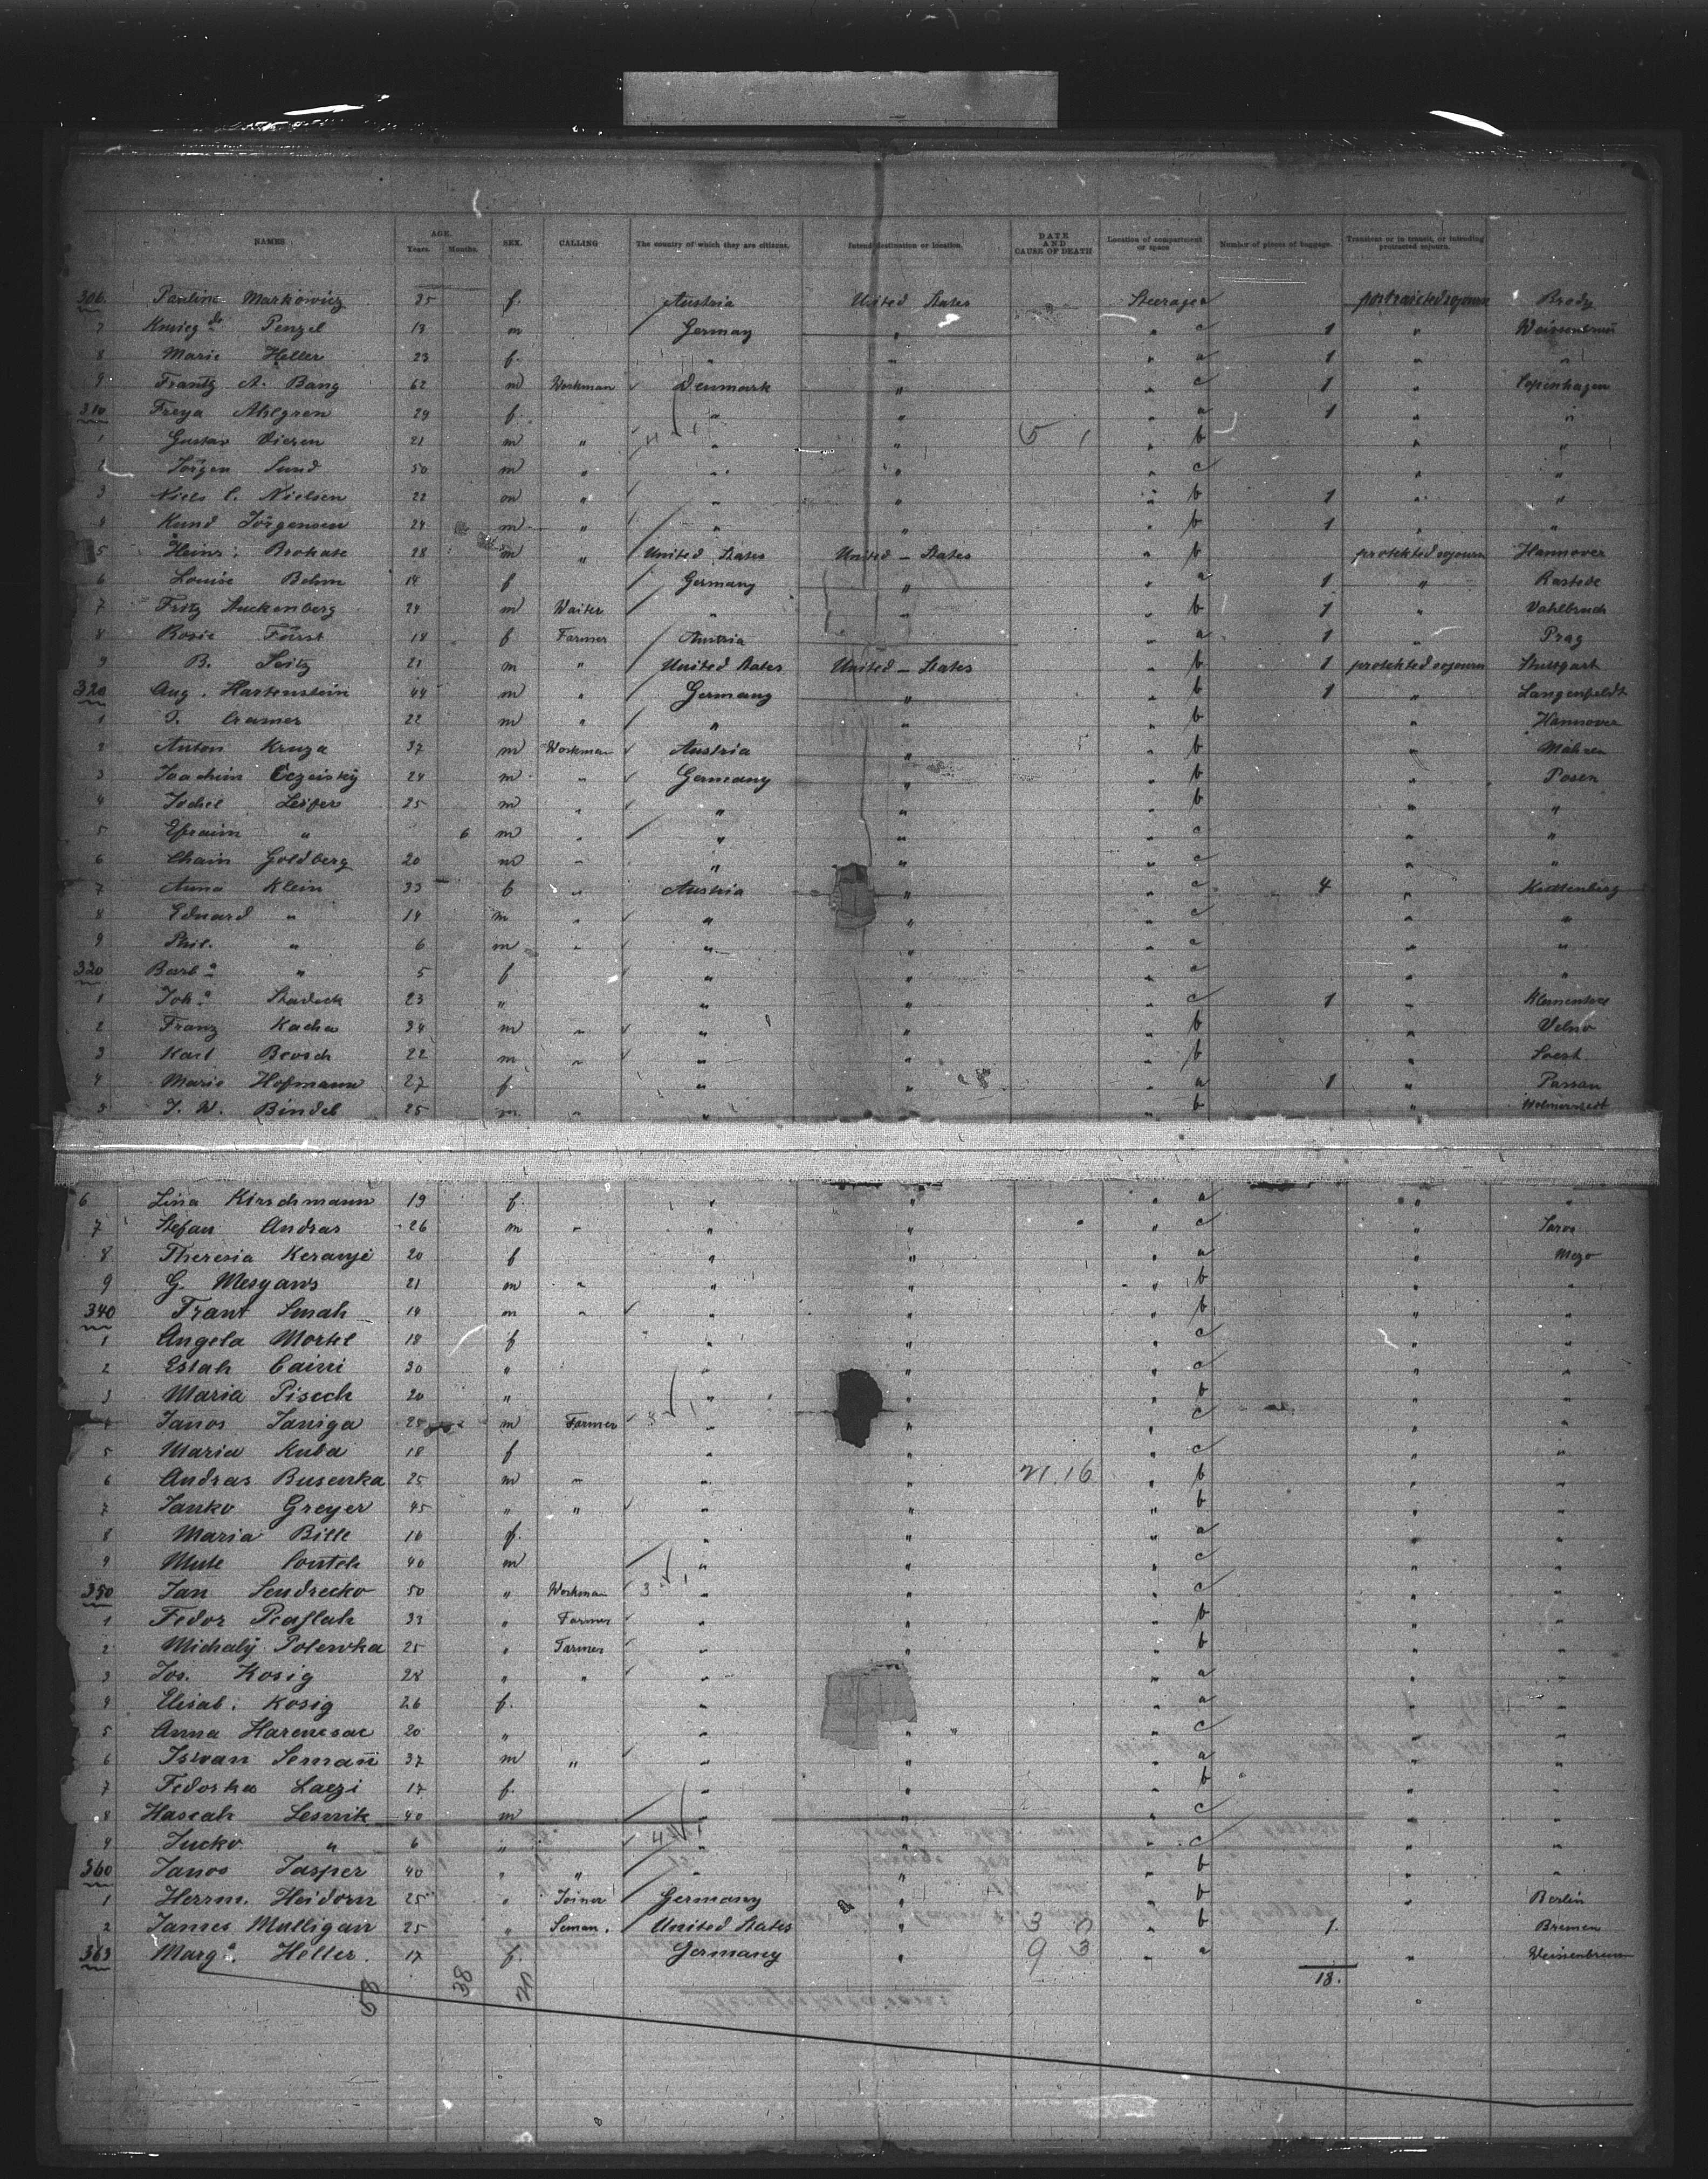 NAMES AGE. Years. Months. SEX. CALLING The country of which they are citizens. Intended destination or location. DATE AND CAUSE OF DEATH Location of compartment or space Number of pieces of baggage. Transient or in transit, or intending protracted sojourn.
306 Pauline Markowicz 35 f. Austria United States Steerage a Brody
7 Penzel 13 m Germany " " c 1 "
8 Marie Heller 23 f. " " " a 1 " "
9 Frantz A. Bang 62 m Workman Denmark " " c 1 " Copenhagen
310 Freya Ahlgren 29 f. " " " a 1 " "
1 Gustav 21 m " " " 5 1 " b " "
2 Jörgen Lund 50 m " " " " c " "
3 Niels C. Nielsen 22 m " " " " b 1 " "
4 Knud Jörgensen 24 m " " " " b 1 " "
5 Heinr. Brokate 28 m " United States United - States " b protekted sojourn Hannover
6 Louise Behm 14 f Germany " " a 1 " Rastede
7 Fritz Stuckenberg 24 m Waiter " " " b 1 " Vahlbruch
8 Rosie Fürst 18 f Farmer Austria " " a 1 " Prag
9 B. Seitz 21 m " United States United - States " b 1 protekted sojourn Stuttgart
320 Aug. Hartenstein 44 m " Germany " " b 1 " Langenfeldt
1 J. Cramer 22 m " " " " b " Hannover
2 Anton Kruza 37 m Workman Austria " 5 " b " Mähren
3 Joachim 24 m " Germany " " b " Posen
4 Jochel Leifer 25 m " " " " b " "
5 Efraim " 6 m " " " " c " "
6 Chain Goldberg 20 m " " " " c " "
7 Anna Klein 33 f " Austria " " c 4 "
8 Eduard " 14 m " " " " c " "
9 Phil. " 6 m " " " " c " "
320 Barb.a " 5 f " " " c " "
1 Joh.a 23 " " " " c 1 "
2 Franz Kacha 34 m " " " " b "
3 Karl 22 m " " " " b " Soest
4 Marie Hofmann 27 f. " " " a 1 " Passau
5 J. W. Bindel 25 m " " " " b "
6 Lina Kirschmann 19 f. " " " a " "
7 Stefan Andras 26 m " " " " c " Saros
8 Theresia Keranyi 20 f " " " a " Mezo
9 G. Mesyaros 21 m " " " " b " "
340 Frant Smah 14 m " " " " b " "
1 Angela Mortel 18 f " " " c " "
2 Estah Caini 30 " " " " c " "
3 Maria Pisech 20 " " " " b " "
4 Janos Janiga 25 m Farmer 3 1 " " " c " "
5 Maria Kuba 18 f " " " c " "
6 Andras Busenka 25 m " " " 21.16 " b " "
7 Janko Greyer 45 " " " " " b " "
8 Maria Bitte 16 f. " " " a " "
9 Mute 40 m " " " c " "
350 Jan Sendrecko 50 " Workman 3 1 " " " c " "
1 Fedor 33 " Farmer " " " b " "
2 Michalÿ Polewka 25 " Farmer " " " b " "
3 Jos. Kosig 28 " " " " " a " "
4 Elisab. Kosig 26 f. " " " a " "
5 Anna Harencsac 20 " " " " c " "
6 Istvan Seman 37 m " " " " a " "
7 Fedorka Laczi 17 f. " " " b " "
8 Hascah Lesnik 40 m " " " c " "
9 Jucko " 6 " 4 1 " " " c " "
360 Janos Jasper 40 " " " " " b " "
1 Herrm. Heidorn 25 " Joiner Germany " " b " Berlin
2 James Mulligan 25 " Seman. United States " 3 0 " b 1. Bremen
363 Marg.a Heller. 17 f. Germany " 9 3 " a " Weissenbrunn
18.
58 38 20